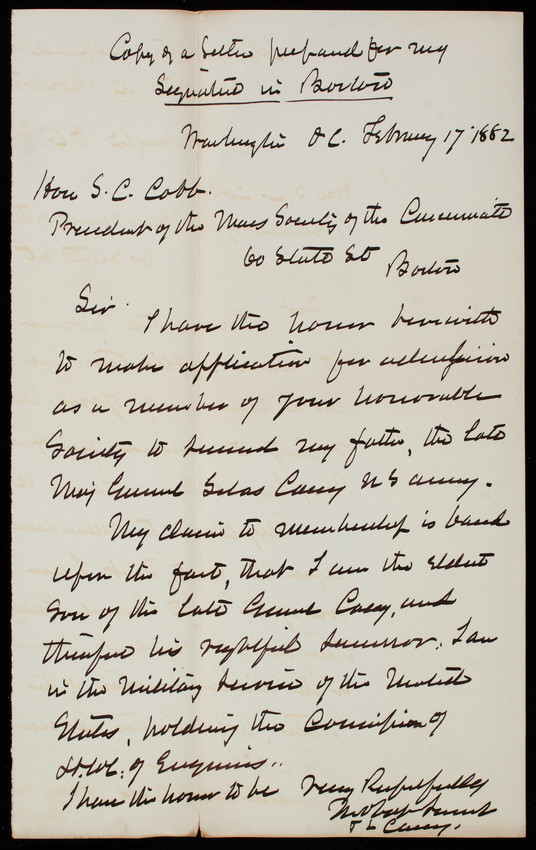 Copy of a Letter prepared for my
Signature in Boston
Washington D C. February 17 1882
Hon S. C. Cobb.
President of the Mass Society of the Cincinnati
60 State St
Boston
Sir.
I have the honor herewith
to make application for admission
as a member of your honorable
Society to succeed my father, the late
Maj General Silas Casey U S army.
My claim to membership is based
upon the fact, that I am the eldest
son of the late General Casey, and
therefore his rightful successor. I am
in the Military Service of the United
States, holding the Commission of
Lt. Col. of Engineers..
I have the honor to be very Respectfully
Your obdt Servt
T L Casey.